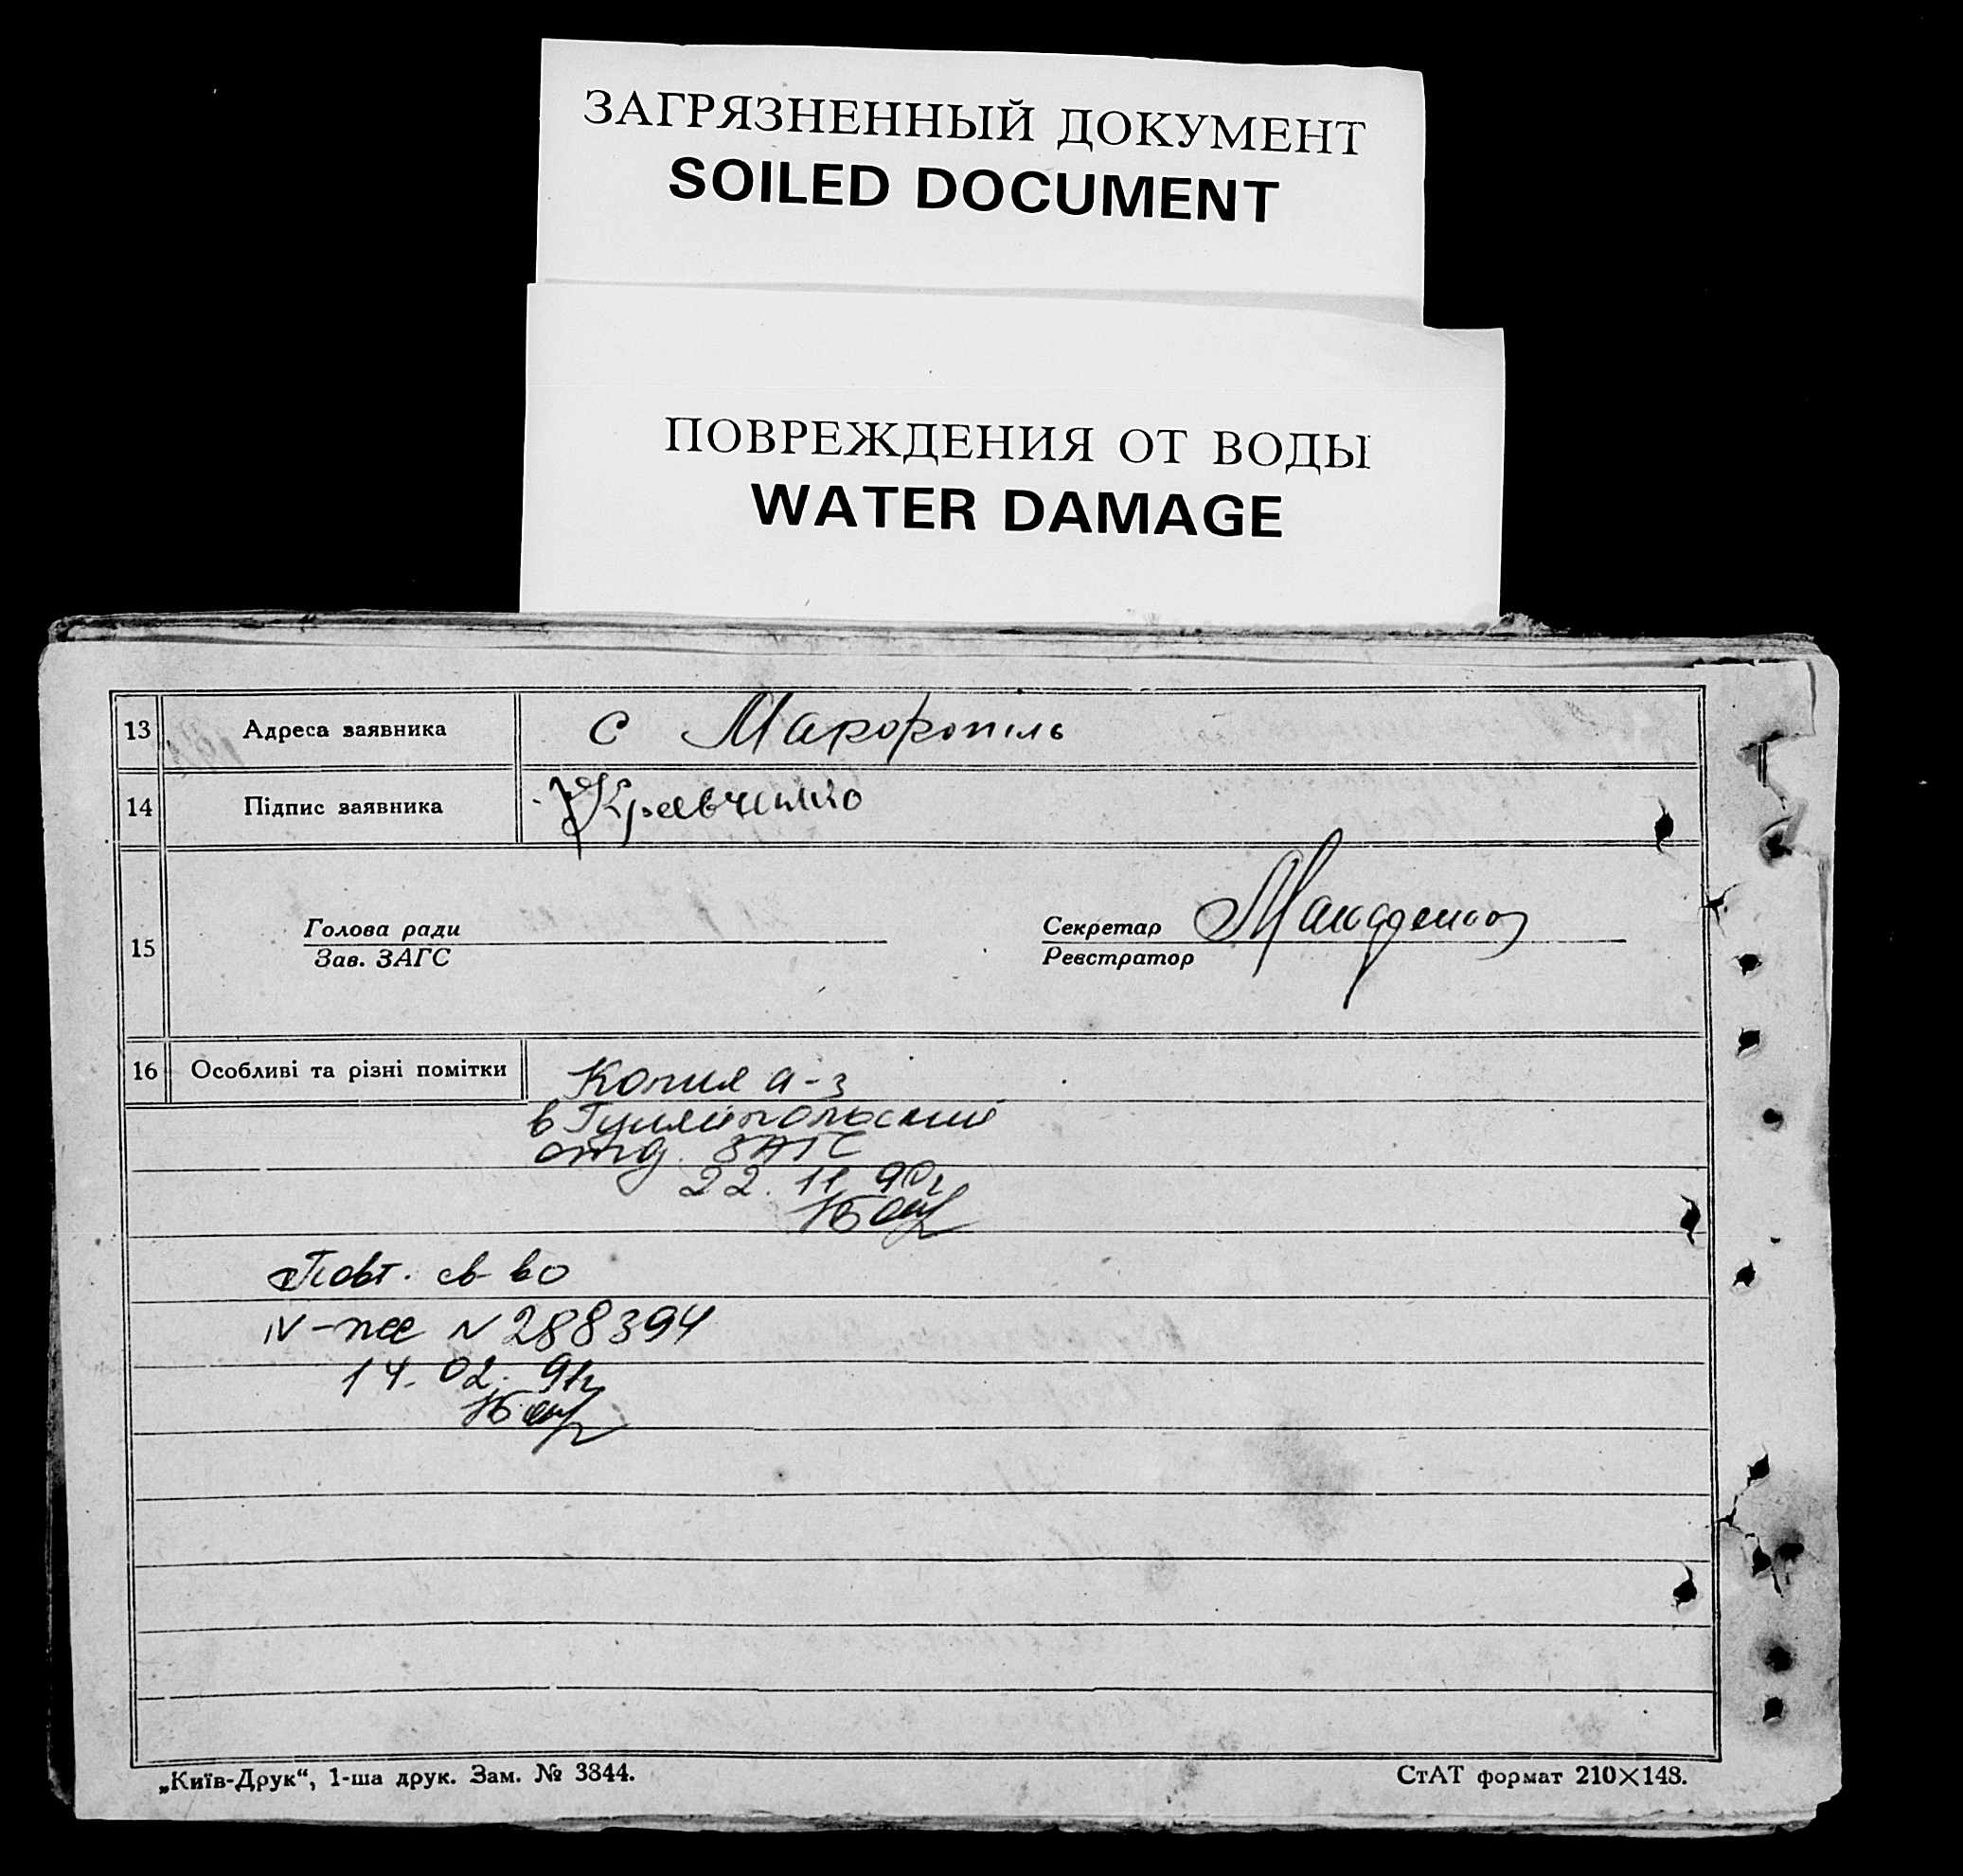 ЗАГРЯЗНЕННЫЙ ДОКУМЕНТ
SOILED DOCUMENT
ПОВРЕЖДЕНИЯ ОТ ВОДЫ
WATER DAMAGE
13 Адреса заявника с
14 Підпис заявника Кравченко
15 Голова ради Секретар
Зав. ЗАГС Реєстратор
16 Особливі та різні помітки Копия а-з
в Гуляйпольский
отд. ЗАГС
22. 11 90г
Повт. св-во
IV- N 288394
14. 02. 91г
„Київ-Друк“, 1-ша друк. Зам. № 3844.
СтАТ формат 210×148.